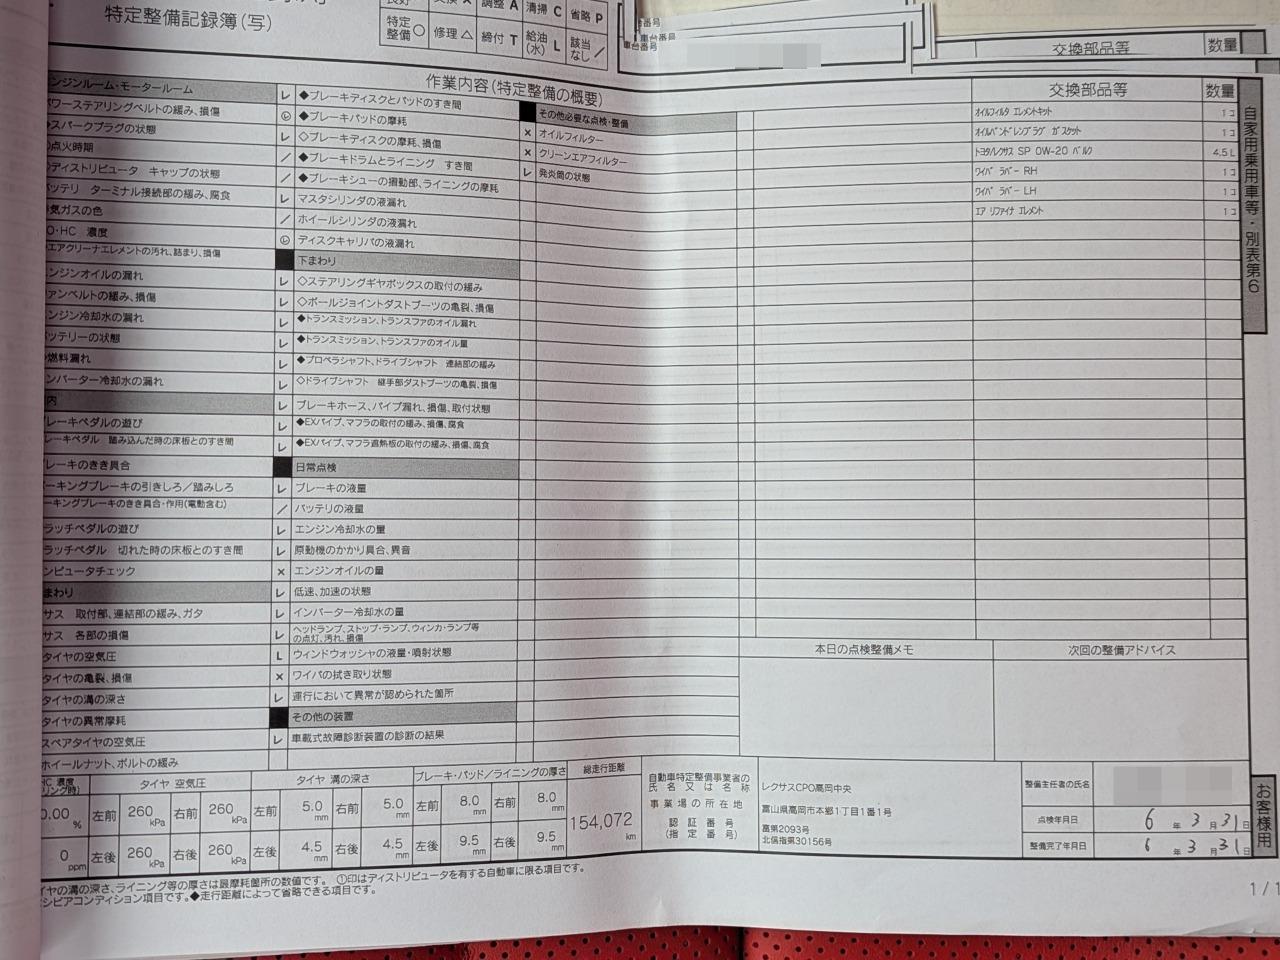 特定整備記録簿(写)
調整 A 清掃 C 省略 P
特定整備 ○ 修理 △ 締付 T 給油(水) L 該当なし ／
車台番号
作業内容(特定整備の概要)
交換部品等 数量
交換部品等 数量
ンジンルーム・モータールーム
パワーステアリングベルトの緩み、損傷
スパークプラグの状態
点火時期
ディストリビュータ キャップの状態
バッテリ ターミナル接続部の緩み、腐食
気ガスの色
O・HC 濃度
エアクリーナエレメントの汚れ、詰まり、損傷
ンジンオイルの漏れ
ァンベルトの緩み、損傷
ンジン冷却水の漏れ
ッテリーの状態
燃料漏れ
ンバーター冷却水の漏れ
内
レーキペダルの遊び
レーキペダル 踏み込んだ時の床板とのすき間
レーキのきき具合
ーキングブレーキの引きしろ/踏みしろ
ーキングブレーキのきき具合・作用(電動含む)
ラッチペダルの遊び
ラッチペダル 切れた時の床板とのすき間
ンピュータチェック
まわり
サス 取付部、連結部の緩み、ガタ
サス 各部の損傷
タイヤの空気圧
タイヤの亀裂、損傷
タイヤの溝の深さ
タイヤの異常摩耗
スペアタイヤの空気圧
ホイールナット、ボルトの緩み
レ ◆ブレーキディスクとパッドのすき間
◆ブレーキパッドの摩耗
レ ◇ブレーキディスクの摩耗、損傷
／ ◆ブレーキドラムとライニング すき間
／ ◆ブレーキシューの摺動部、ライニングの摩耗
レ マスタシリンダの液漏れ
／ ホイールシリンダの液漏れ
ディスクキャリパの液漏れ
下まわり
レ ◇ステアリングギヤボックスの取付の緩み
レ ◇ボールジョイントダストブーツの亀裂、損傷
レ ◆トランスミッション、トランスファのオイル漏れ
レ ◆トランスミッション、トランスファのオイル量
レ ◆プロペラシャフト、ドライブシャフト 連結部の緩み
レ ◇ドライブシャフト 継手部ダストブーツの亀裂、損傷
レ ブレーキホース、パイプ漏れ、損傷、取付状態
レ ◆EXパイプ、マフラの取付の緩み、損傷、腐食
レ ◆EXパイプ、マフラ遮熱板の取付の緩み、損傷、腐食
日常点検
レ ブレーキの液量
／ バッテリの液量
レ エンジン冷却水の量
レ 原動機のかかり具合、異音
× エンジンオイルの量
レ 低速、加速の状態
レ インバーター冷却水の量
レ ヘッドランプ、ストップ・ランプ、ウィンカ・ランプ等の点灯、汚れ、損傷
L ウィンドウォッシャの液量・噴射状態
× ワイパの拭き取り状態
レ 運行において異常が認められた箇所
その他の装置
レ 車載式故障診断装置の診断の結果
その他必要な点検・整備
× オイルフィルター
× クリーンエアフィルター
レ 発炎筒の状態
ｵｲﾙﾌｨﾙﾀ ｴﾚﾒﾝﾄｷｯﾄ 1コ
ｵｲﾙﾊﾟﾝﾄﾞﾚﾝﾌﾟﾗｸﾞ ｶﾞｽｹｯﾄ 1コ
ﾄﾖﾀ/ﾚｸｻｽ SP 0W-20 ﾊﾞﾙｸ 4.5 L
ﾜｲﾊﾟ ﾗﾊﾞｰ RH 1コ
ﾜｲﾊﾟ ﾗﾊﾞｰ LH 1コ
ｴｱ ﾘﾌｧｲﾅ ｴﾚﾒﾝﾄ 1コ
自家用乗用車等・別表第6
本日の点検整備メモ 次回の整備アドバイス
HC 濃度 タイヤ 空気圧 タイヤ 溝の深さ ブレーキ・パッド/ライニングの厚さ 総走行距離
0.00 % 左前 260 kPa 右前 260 kPa 左前 5.0 mm 右前 5.0 mm 左前 8.0 mm 右前 8.0 mm
154,072 km
0 ppm 左後 260 kPa 右後 260 kPa 左後 4.5 mm 右後 4.5 mm 左後 9.5 mm 右後 9.5 mm
自動車特定整備事業者の氏名又は名称 レクサスCPO高岡中央
事業場の所在地 富山県高岡市本郷1丁目1番1号
認証番号 富第2093号
(指定番号) 北信指第30156号
整備主任者の氏名
点検年月日 6 年 3 月 31 日
整備完了年月日 6 年 3 月 31 日
お客様用
イヤの溝の深さ、ライニング等の厚さは最摩耗箇所の数値です。 ①印はディストリビュータを有する自動車に限る項目です。
シビアコンディション項目です。◆走行距離によって省略できる項目です。
1/1